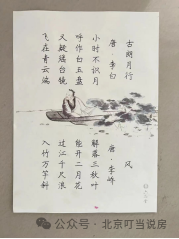 古朗月行
唐·李白
小时不识月
呼作白玉盘
又疑瑶台镜
飞在青云端
风
唐·李峤
解落三秋叶
能开二月花
过江千尺浪
入竹万竿斜
公众号·北京叮当说房